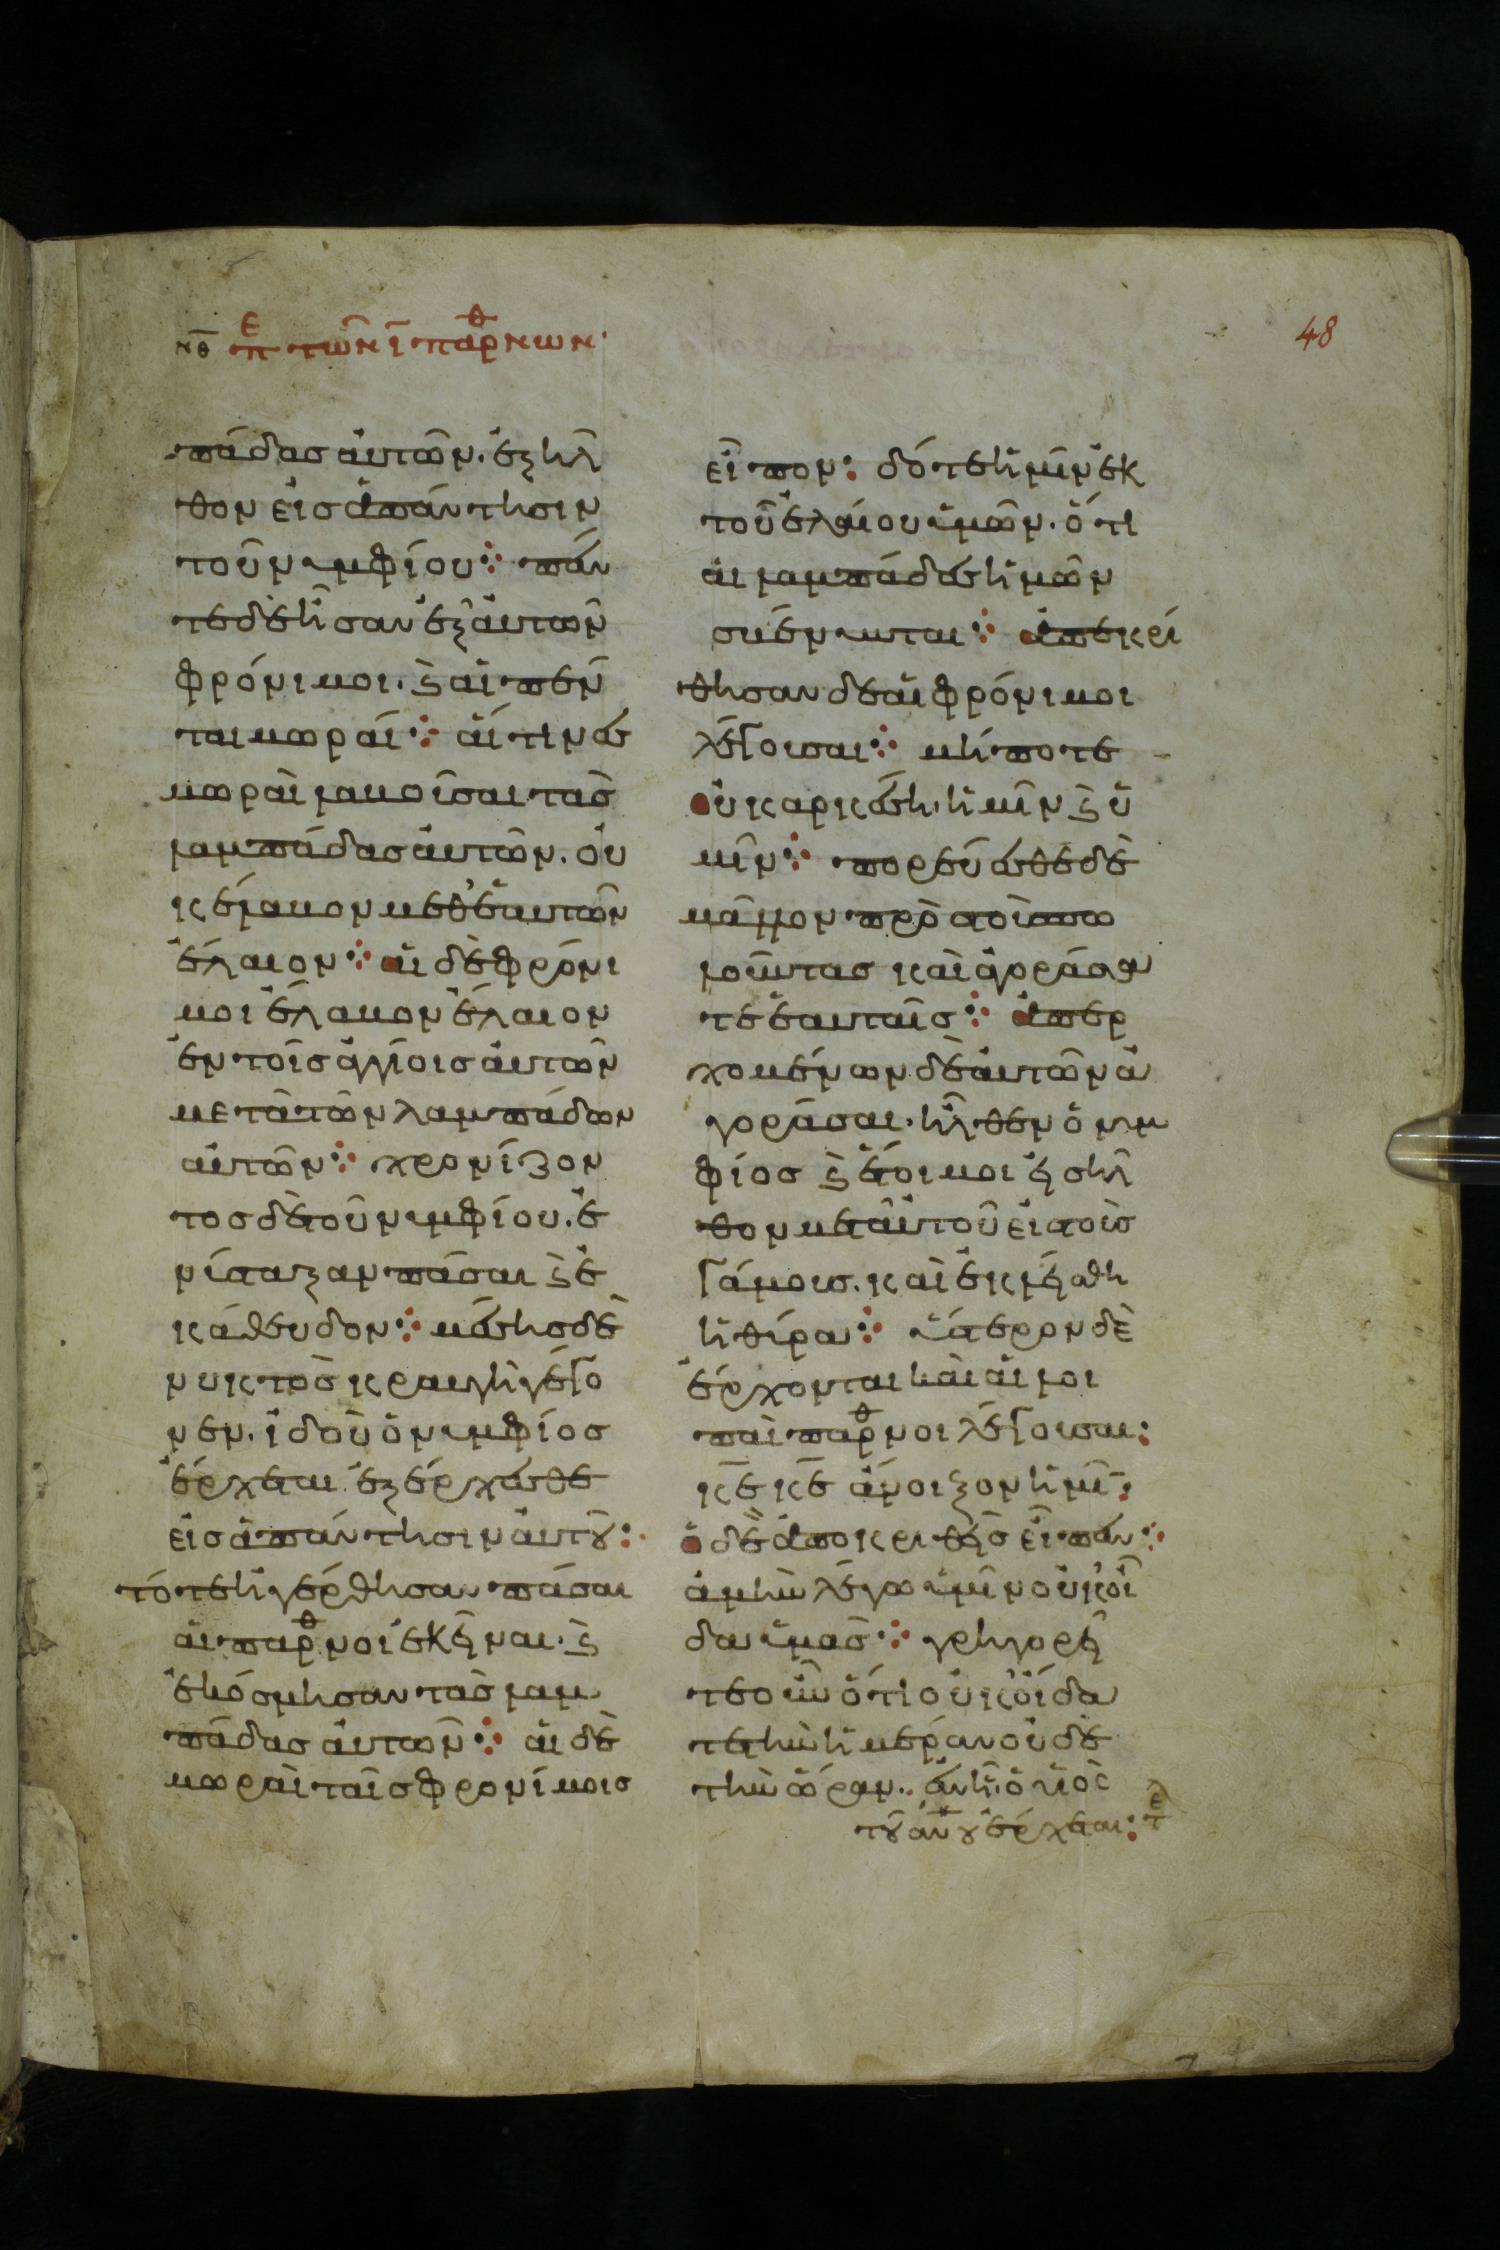 νθ πε τῶν ῑ παρθνων·
48
πάδασ ἀυτῶν· ἐξῆλ
θον εἰσ ἀπάντησιν
τοῦ νυμφίου⁘ πέν
τε δὲ ἦσαν ἐξ ἀυτῶν
φρόνιμοι· ϗ ἁι πέν
ται μωραί⁘ ἅι τινεσ
μωραὶ λαμοῦσαι τὰσ
λαμπάδασ ἀυτῶν· οὐ
κ ἔλαμον μεθ' ἑαυτῶν
ἔλαιον⁘ ἁι δὲ φρόνι
μοι ἔλαμον ἔλαιον
ἐν τοῖσ ἀγγίοισ ἀυτῶν
μετὰ τῶν λαμπάδων
ἀυτῶν⁘ χρονίζον
τοσ δὲ τοῦ νυμφίου· ἐ
νίσταξαν πᾶσαι ϗ ἐ
κάθευδον⁘ μέσησ δὲ
νυκτὸσ κραυγὴ γέγο
νεν· ἰδοὺ ὁ νυμφίοσ
ἔρχεται ἐξέρχεσθε
εἰσ ἀπάντησιν ἀυτοῦ⁘
τότε ἠγέρθησαν πάσαι
ἁι παρθνοι ἐκεῖναι· ϗ
ἐκόσμησαν τὰσ λαμ
πάδασ ἀυτῶν⁘ ἁι δὲ
μωραὶ ταῖσ φρονίμοισ
εἶπον: δότε ἡμῖν ἐκ
τοῦ ἐλαίου ὑμῶν· ὅτι
ἁι λαμπάδεσ ἡμῶν
σβέννυνται⁘ ἀπεκρί
θησαν δὲ ἁι φρόνιμοι
λέγουσαι⁘ μήποτε
οὐκ αρκέση· ἡμῖν ϗ ὑ
μῖν⁘ πορεύεσθε δὲ
μᾶλλον πρὸσ τοὺσ πω
λοῦντασ καὶ ἀγοράσα
τε ἑαυταῖσ⁘ ἀπερ
χομένων δὲ ἀυτῶν ἀ
γοράσαι· ἦλθεν ὁ νυμ
φίοσ ϗ ἕτοιμοι εἰσῆλ
θον μετ' ἀυτοῦ εἰσ τοὺσ
γάμουσ· καὶ ἐκλείσθη
ἡ θύρα⁘ ὕστερον δὲ
ἔρχονται καὶ ἁι λοι
παὶ παρθνοι λέγουσαι:
κ̅ε̅ κ̅ε̅ ἄνοιξον ἡμῖ⁘
ὁ δὲ ἀποκριθεὶσ εἶπεν⁘
ἀμὴν λέγω ὑμῖν οὐκ οἶ
δα ὑμασ⁘ γρηγορεῖ
τε οὖν ὅτι οὐκ οἴδα
τε τὴν ἡμέραν οὐδὲ
τὴν ὥραν· ἐν ἧ ὁ υἱὸσ
τοῦ ἀνου ἔρχεται: τελ